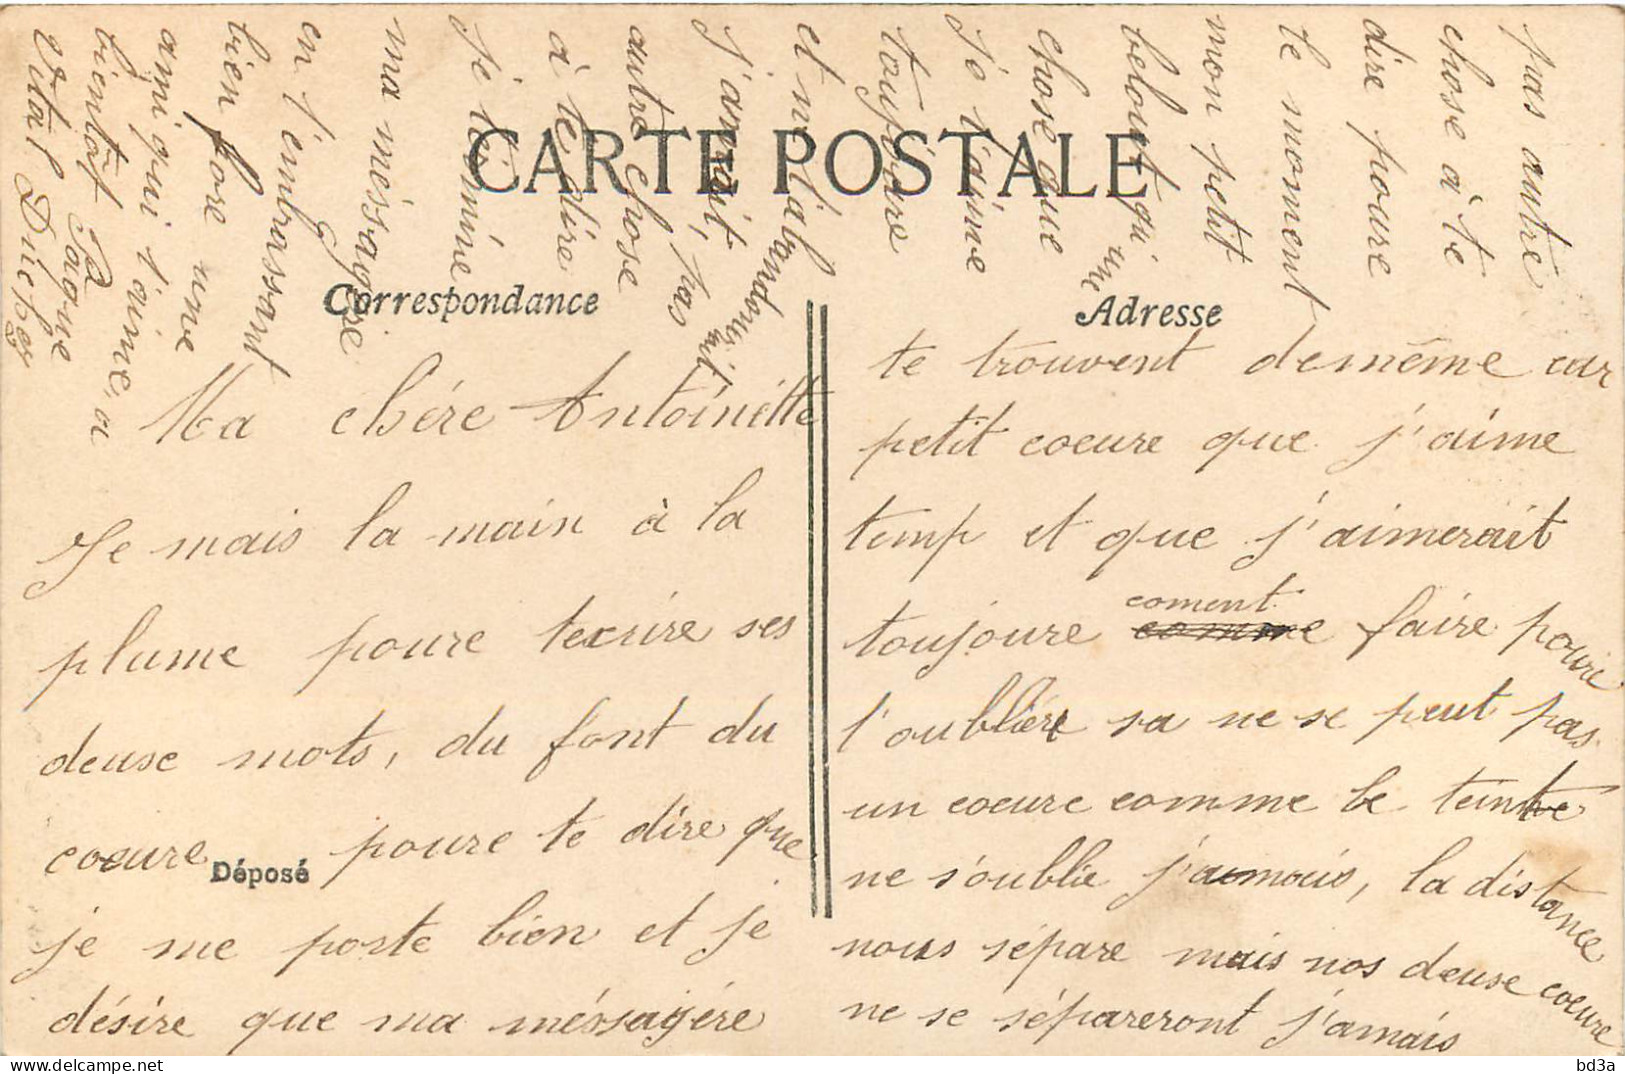 CARTE POSTALE
Correspondance
Adresse
Ma chére Antoinètte
Je mais la main à la
plume poure tecrire ses
deuse mots, du font du
coeure poure te dire que
Déposé
je me porte bien et je
désire que ma méssagére
te trouvent demême car
petit coeure que j'aime
temp et que j'aimerait
toujoure coment faire poure
l'oublière sa ne se peut pas
un coeure comme le tein
ne s'oublie j'amais, la distance
nous sépare mais nos deuse coeure
ne se sépareront j'amais
pas autre
chose à te
dire poure
le moment
mon petit
belout qui
chose que
Je t'aime
toujoure
et m'abandone
J'amait, pas
autre chose
à te dire
Je términe
ma méssagére
en t'émbrassant
bien fore une
ami qui t'aime, a
bientôt
Vital Duchez
bd3a